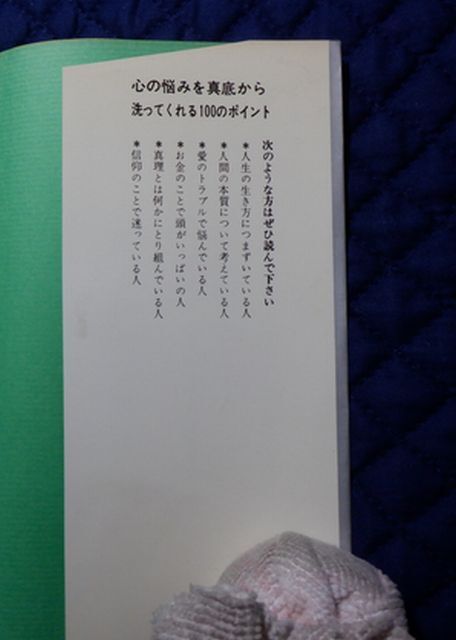 心の悩みを真底から
洗ってくれる100のポイント
次のような方はぜひ読んで下さい
＊人生の生き方につまずいている人
＊人間の本質について考えている人
＊愛のトラブルで悩んでいる人
＊お金のことで頭がいっぱいの人
＊真理とは何かにとり組んでいる人
＊信仰のことで迷っている人